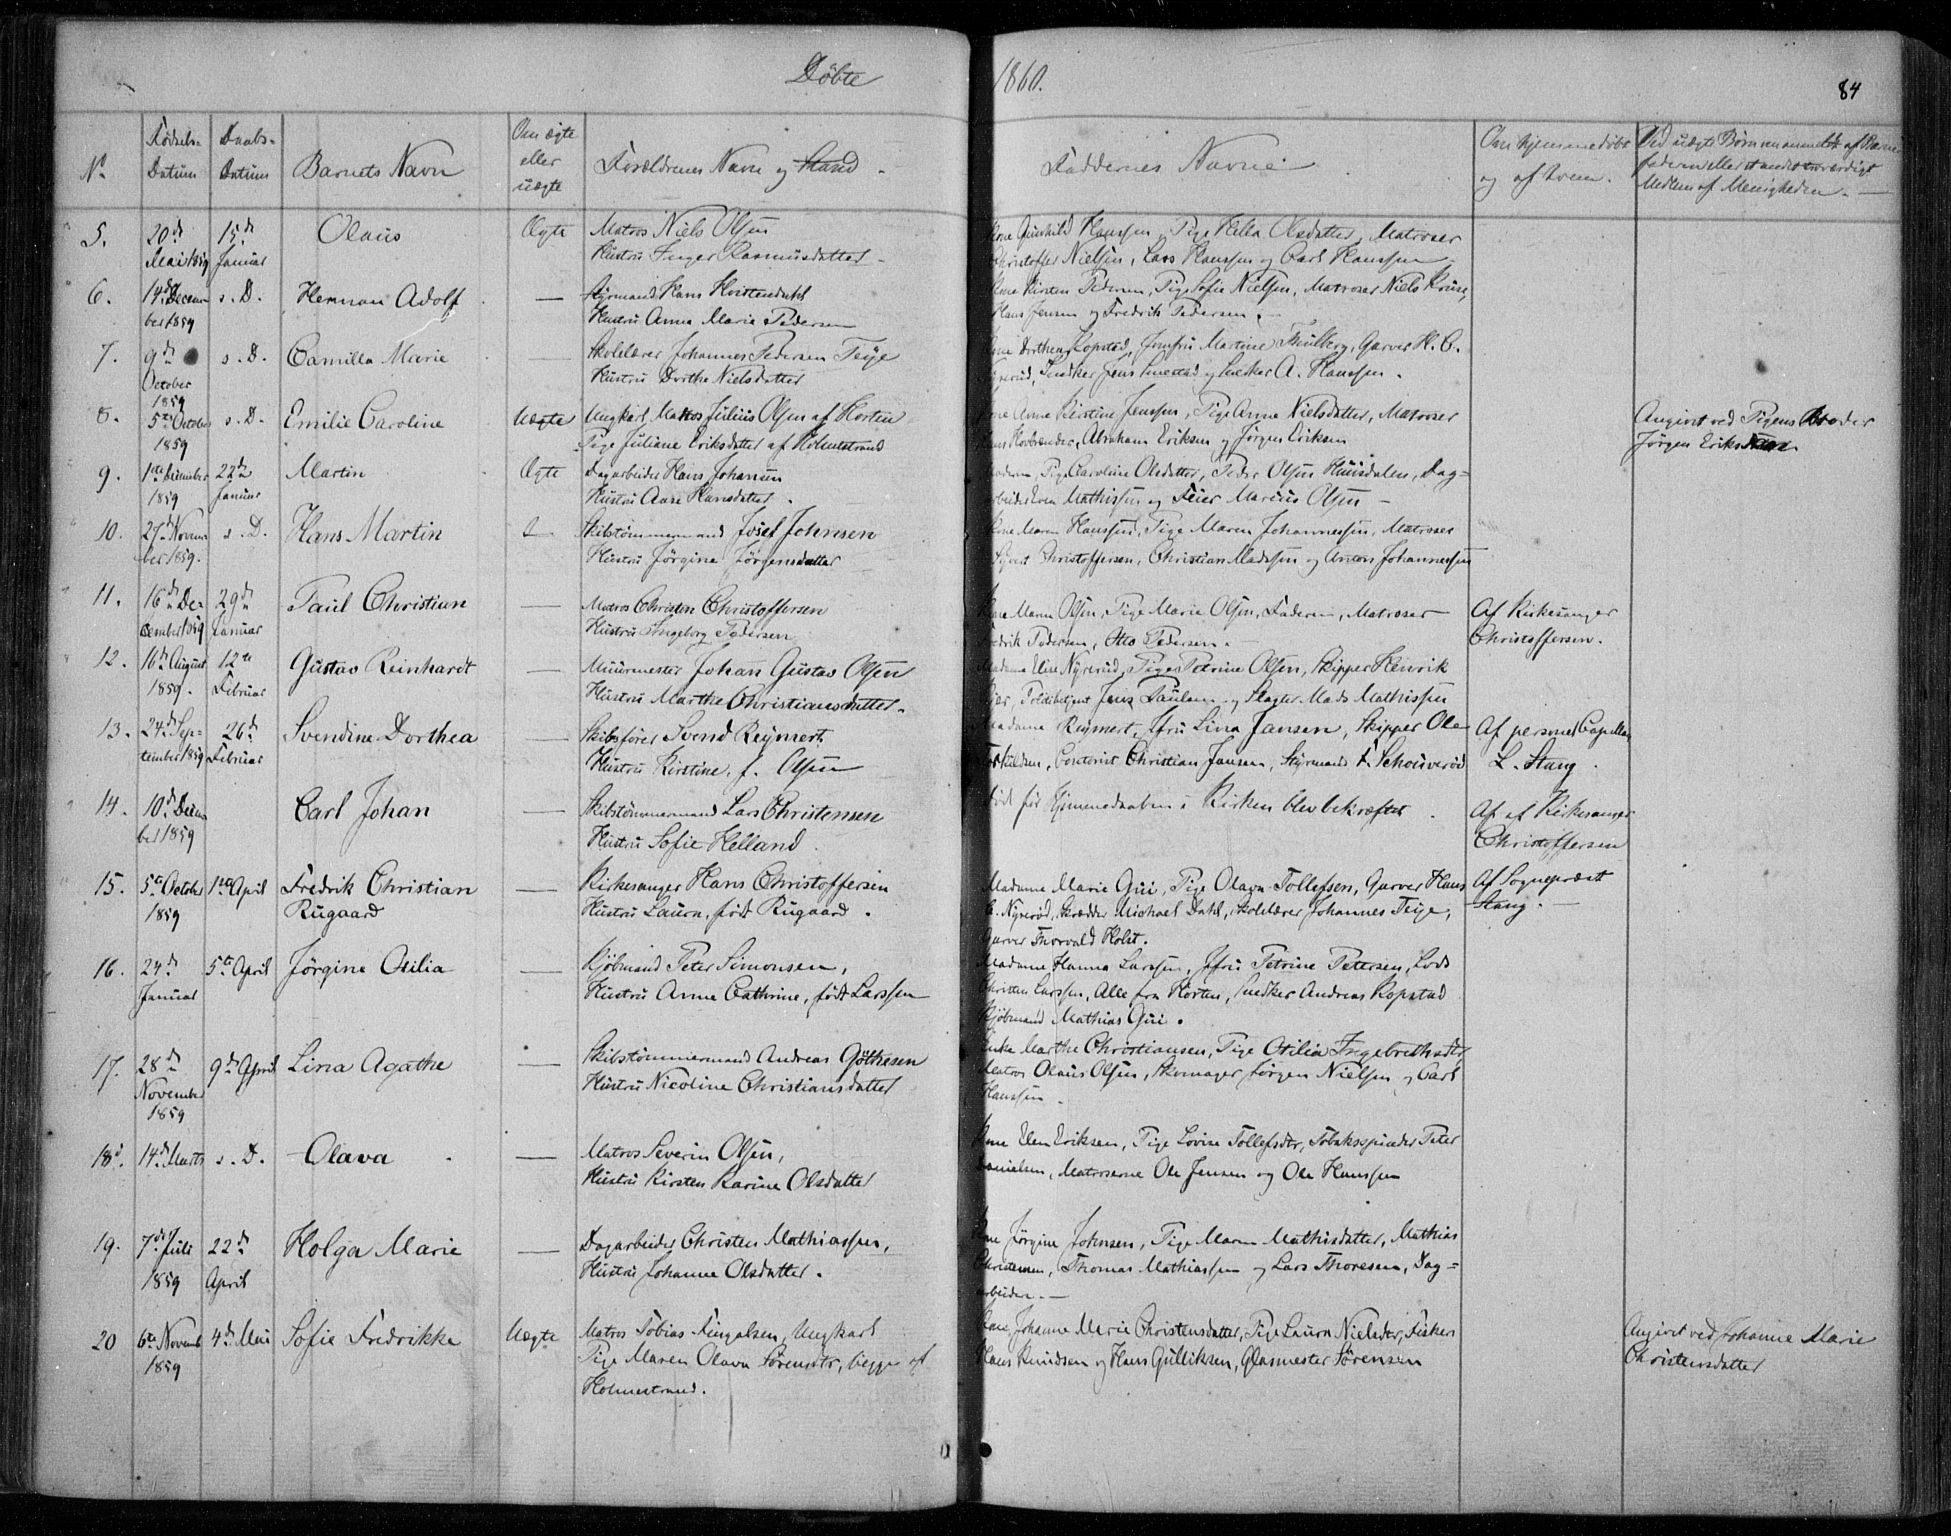 Döbte 1860. 84
No Födsels-Datum Daabs-Datum Barnets Navn Om ægte eller uægte Forældrenes Navn og Stand Faddernes Navne Om hjemmedöbt og af hvem.
5. 20de Mai 1859 15de Januar Olaus Ægte Matros Niels Olsen
Hustru Inger Rasmusdatter
Gunhild Hanssen, Pige Helta Olsdatter, Matroser
Christoffer Nielsen, Lars Hanssen og Carl Hanssen
6. 14de December 1859 s. D. Herman Adolf — Styrmand Hans
Hustru Anne Marie Pedersen
Kirsten Pedersen, Pige Sofie Nielsen, Matroser Niels Kruse,
Hans Jensen og Fredrik Pedersen. —
7. 9de October 1859 s. D. Camilla Marie — Skolelærer Johannes Pedersen Teije
Hustru Dorthe Nielsdatter
Dorthea Kopstad, Jomfru Martine Thulberg, Garver H. C.
Nyeröd, Snedker Jens Smestad og Snedker A. Hanssen.
8. 5te October 1859 s. D. Emilie Caroline Uægte Ungkarl Matros Julius Olsen af Horten
Pige Juliane Eriksdatter af Holmestrand
Anne Kirstine Jenssen, Pige Anne Nielsdatter, Matroser
Abraham Eriksen og Jörgen Eriksen
Angivet ved Pigens Broder
Jörgen Eriksen
9. 1ste December 1859 22de Januar Martin Ægte Dagarbeider Hans Johansen
Hustru Anne Hansdatter.
Pige Caroline Olsdatter, Peder Olsen Huusdalen, Dag=
arbeider Even Mathissen og Feier Marius Olsen —
10. 27de November 1859. s. D. Hans Martin Skibstömmermand Josef Johnsen
Hustru Jörgine Jörgensdatter
Maren Hanssen, Pige Maren Johannessen, Matroser
Syvert Christoffersen, Christian Madssen og Anton Johannessen
11. 16de December 1859 29de Januar Paul Christian — Matros Christen Christoffersen
Hustru Ingeborg Pedersen
Maren Olsen, Pige Marie Olsen, Faderen, Matroser
Fredrik Pedersen, Otto Pedersen. —
Af Kirkesanger
Christoffersen.
12. 16de August 1859. 12te Februar Gustav Reinhardt — Muurmester Johan Gustav Olsen
Hustru Marthe Christiansdatter.
Madame Eline Nyeröd, Pige Petrine Olsen, Skipper Henrik
Toldbetjent Jens Paulsen og Slagter Mads Mathissen
13. 24de September 1859 26de Februar Svendine Dorthea — Skibsförer Svend Reymert.
Hustru Kirstine, f. Olsen
Madame Reymert, Jfru Lina Jansen, Skipper Ole
Torkildsen, Christian Jansen, Styrmand F. Schouveröd
Af personel Capellan
L. Stang.
14. 10de December 1859 Carl Johan — Skibstömmermand Lars Christensen
Hustru Sofie Helland.
Död för Hjemmedaaben i Kirken blev bekræftet.
Af af Kirkesanger
Christoffersen
15. 5te October 1859 1ste April Fredrik Christian
Rugaard — Kirkesanger Hans Christoffersen
Hustru Laura, född Rugaard.
Madame Marie Gui, Pige Olava Tollefsen, Garver Hans
C. Nyeröd, Skrædder Michael Dahl, Skolelærer Johannes Teije,
Garver Thorvald Holst.
Af Sognepræst
Stang. —
16. 24de Januar 5te April Jörgine Otilia — Kjöbmand Peter Simonsen,
Hustru Anne Cathrine, född Larssen
Madame Hanna Larssen, Jfru Petrine Petersen, Lods
Christen Larssen, Alle fra Horten, Snedker Andreas Kopstad
Kjöbmand Mathias Gui.
17. 28de November 1859 9de April Lina Agathe — Skibstömmermand Andreas Göthesen
Hustru Nicoline Christiansdatter
Enke Marthe Christiansen, Pige Otilia Ingebrethsdtr,
Matros Olaus Olsen, Skomager Jörgen Nielsen og Carl
Hanssen —
18. 14de Marts s. D. Olava — Matros Severin Olsen,
Hustru Kirsten Karine Olsdatter
Elen Eriksen, Pige Lovise Tollefsdtr, Tobaksspinder Peter
Danielsen, Matroserne Ole Jensen og Ole Hanssen
19. 7de Juli 1859 22de April Holga Marie — Dagarbeider Christen Mathiassen,
Hustru Johanne Olsdatter.
Jörgine Johnsen, Pige Maren Mathisdatter, Mathias
Christensen, Thomas Mathiassen og Lars Thoresen, Dag=
arbeidere. —
20 6te Novemb 1859 4de Mai Sofie Fredrikke Uægte Matros Tobias Fingalsen, Ungkarl
Pige Maren Olava Sörensdtr, begge af
Holmestrand.
Johanne Marie Christensdatter, Pige Laura Nielsdtr, Fisker
Hans Knudsen og Hans Gulliksen, Glasmester Sörensen
Angivet ved Johanne Marie
Christensdatter